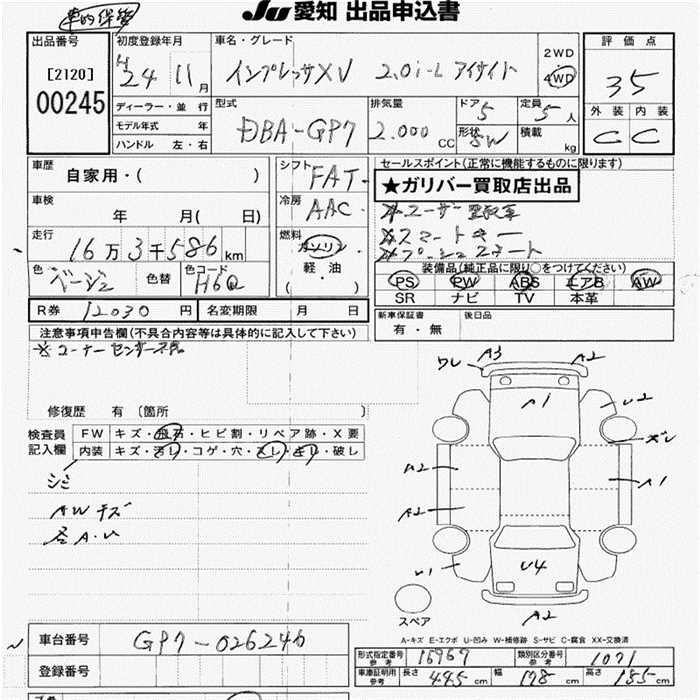 車的保管
JU愛知 出品申込書
出品番号
[2120]
00245
初度登録年月
H24 11月
ディーラー・並 行
モデル年式 年
ハンドル 左・右
車名・グレード
インプレッサXV 2.0i-L アイサイト
2WD
4WD
型式
DBA-GP7
排気量
2.000 CC
ドア 5
形状 SW
定員 5 人
積載 kg
評価点
35
外装 内装
C C
車歴
自家用・( )
車検
年 月( 日)
走行
16万3千586km
色 ベージュ 色替 色コード H6Q
シフト
FAT
冷房
AAC
燃料
ガソリン
軽・油
( )
セールスポイント(正常に機能するものに限ります)
★ガリバー買取店出品
※ユーザー買取車
※スマートキー
※プッシュスタート
装備品(純正品に限り○をつけてください)
PS PW ABS エアB AW
SR ナビ TV 本革
R券 12030円 名変期限 月 日
新車保証書
有・無
後日品
注意事項申告欄(不具合内容等は具体的に記入して下さい)
※コーナーセンサー不良
修復歴 有 〔箇所 〕
検査員
記入欄
FW キズ・飛石・ヒビ割・リペア跡・X要
内装 キズ・汚レ・コゲ・穴・スレ・キレ・破レ
シミ
AWキズ
各A.U
ワレ A3 A2
A1
U2
ズレ
A2
A1
A2
U1
U4
A2
スペア
A-キズ E-エクボ U-凹み W-補修跡 S-サビ C-腐食 XX-交換済
車台番号 GP7-026246
登録番号
形式指定番号 参考 16967 類別区分番号 参考 1071
車庫証明用 参考 長さ 445 cm 幅 178 cm 高さ 155 cm